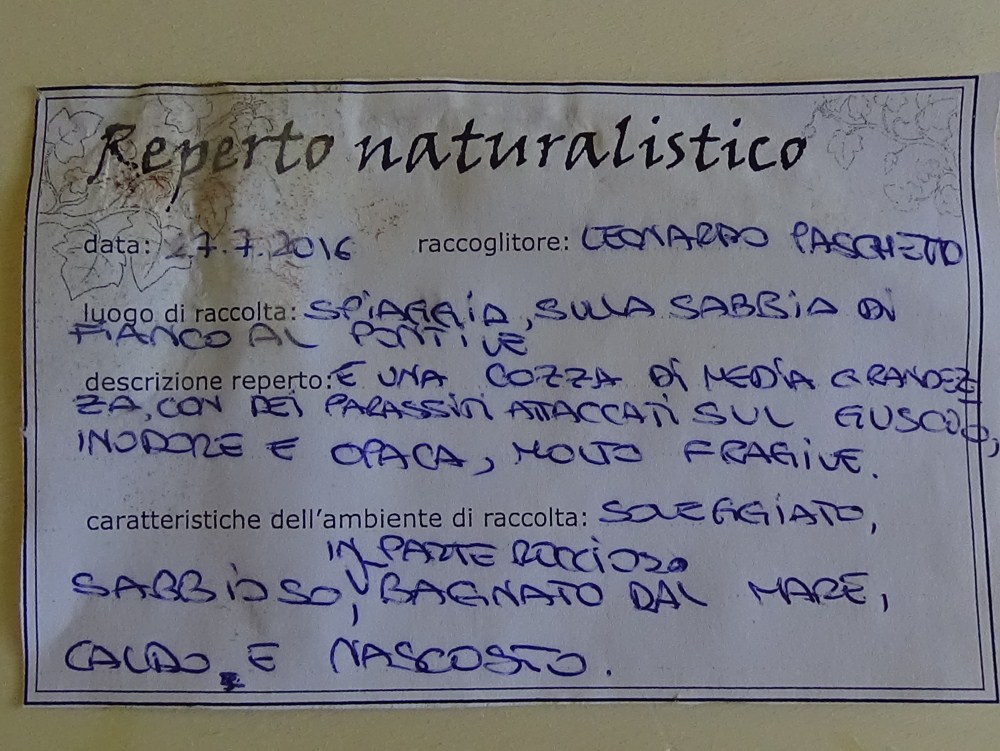 Reperto naturalistico
data: 27.7.2016 raccoglitore: LEONARDO PASCHETTO
luogo di raccolta: SPIAGGIA, SULLA SABBIA DI
FIANCO AL PONTILE
descrizione reperto: È UNA COZZA DI MEDIA GRANDEZ
ZA, CON DEI PARASSITI ATTACCATI SUL GUSCIO,
INODORE E OPACA, MOLTO FRAGILE.
caratteristiche dell'ambiente di raccolta: SOLEGGIATO,
IN PARTE ROCCIOSO
SABBIOSO, BAGNATO DAL MARE,
CALDO E NASCOSTO.